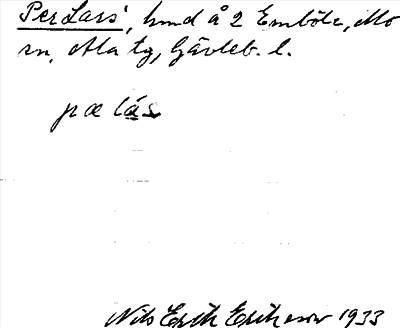 Per Lars', hmd å 2 Emböle, Mo
sn, Ala tg, Gävleb. l.
pæ lás
Nils Erik Erikson 1933